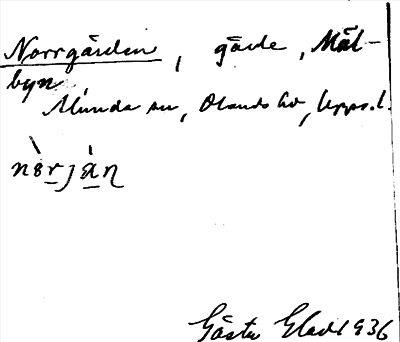 Norrgården, gärde, Mål-
byn
Alunda sn, Olands hd, Upps. l.
Gösta Elad 1936